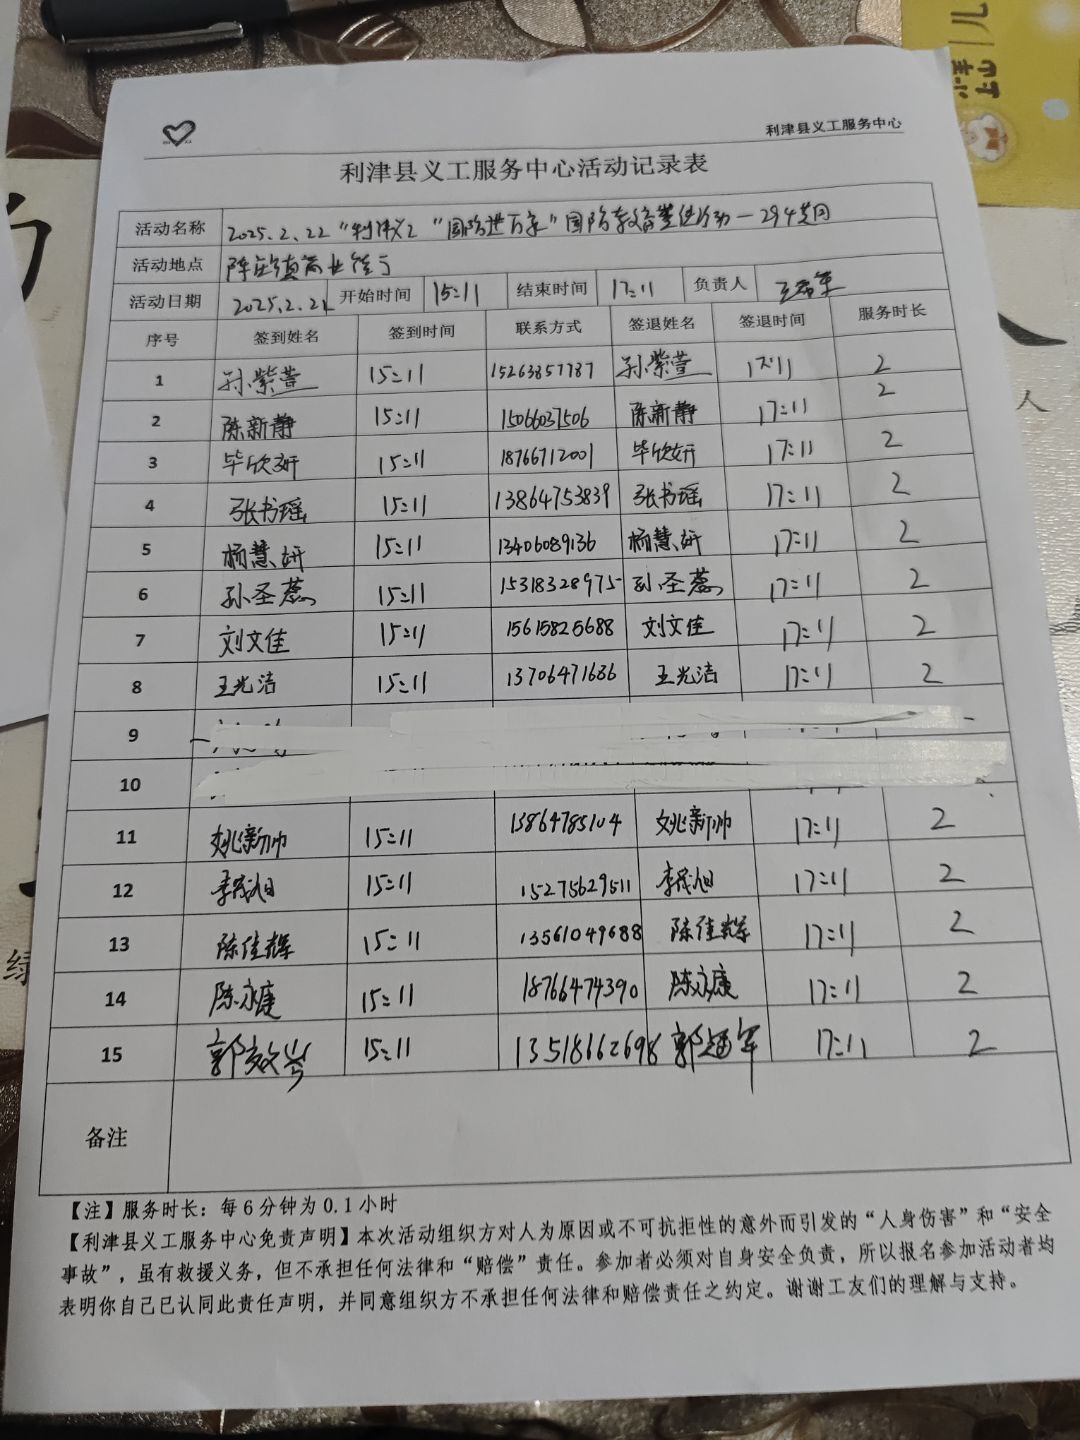 利津县义工服务中心
利津县义工服务中心活动记录表
活动名称 2025.2.22 "利津义工 "国防进万家" 国防教育宣传活动—294范围
活动地点 陈庄镇商业街
活动日期 2025.2.22 开始时间 15:11 结束时间 17:11 负责人
序号 签到姓名 签到时间 联系方式 签退姓名 签退时间 服务时长
1 孙紫萱 15:11 15263857787 孙紫萱 17:11 2
2 陈新静 15:11 15066037506 陈新静 17:11 2
3 毕欣妍 15:11 18766712001 毕欣妍 17:11 2
4 张书瑶 15:11 13864753839 张书瑶 17:11 2
5 杨慧妍 15:11 13406089136 杨慧妍 17:11 2
6 孙圣蕊 15:11 15318328975 孙圣蕊 17:11 2
7 刘文佳 15:11 15615825688 刘文佳 17:11 2
8 王光洁 15:11 13706471686 王光洁 17:11 2
9
10
11 姚新帅 15:11 13864785104 姚新帅 17:11 2
12 李茂旭 15:11 15275629511 李茂旭 17:11 2
13 陈佳辉 15:11 13561049688 陈佳辉 17:11 2
14 陈永康 15:11 18766474390 陈永康 17:11 2
15 郭效岑 15:11 13518662698 郭通军 17:11 2
备注
【注】服务时长：每6分钟为0.1小时
【利津县义工服务中心免责声明】本次活动组织方对人为原因或不可抗拒性的意外而引发的“人身伤害”和“安全
事故”，虽有救援义务，但不承担任何法律和“赔偿”责任。参加者必须对自身安全负责，所以报名参加活动者均
表明你自己已认同此责任声明，并同意组织方不承担任何法律和赔偿责任之约定。谢谢工友们的理解与支持。
小羊
上山
儿
人
绿